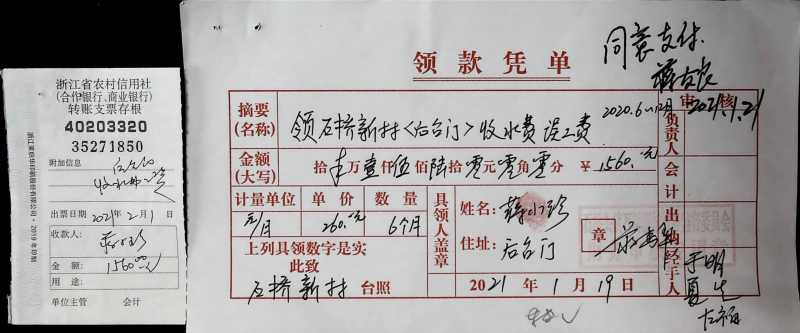 浙江省农村信用社
(合作银行、商业银行)
转账支票存根
40203320
35271850
附加信息
出票日期 2021年2月1日
收款人:
蒋小珍
金 额: 1560.00
用 途:
单位主管 会计
领款凭单
同意支付.
2021.1.21
摘要
(名称)
领石桥新村〈后台门〉收水费误工费
2020.6~12月
金额
(大写)
拾 万壹仟伍佰陆拾零元零角零分 ¥1560.元
计量单位 单 价 数 量
元/月 260.元 6个月
上列具领数字是实
此致
石桥新村 台照
具领人盖章
姓名: 蒋小珍
住址: 后台门
章
2021年1月19日
审核
负责人
会计
出纳
经手人
于明